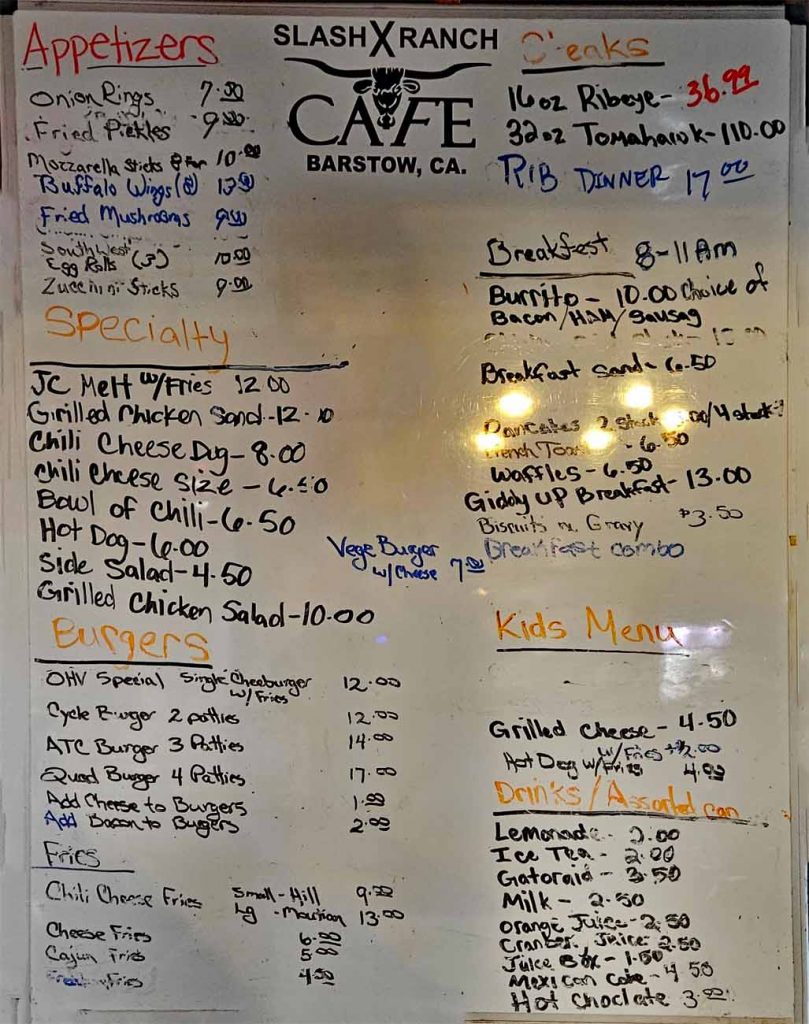 SLASH X RANCH
CAFE
BARSTOW, CA.
Appetizers
Onion Rings 7.00
Fried Pickles 9.00
Mozzarella Sticks 10.00
Buffalo Wings
Fried Mushrooms 9.00
South West
Egg Rolls (3) 10.00
Zucchini Sticks 9.00
Specialty
JC Melt w/Fries 12.00
Grilled Chicken Sand-12.
Chili Cheese Dog-8.00
Chili Cheese Size -
Bowl of Chili-6.50
Hot Dog-6.00
Side Salad-4.50
Grilled Chicken Salad-10.00
Vege Burger
w/Cheese 7.00
Burgers
OHV Special Single Cheeburger
w/Fries 12.00
Cycle Burger 2 patties 12.00
ATC Burger 3 Patties 14.00
Quad Burger 4 Patties 17.00
Add Cheese to Burgers 1.00
Add Bacon to Burgers 2.00
Fries
Chili Cheese Fries Small-Hill 9.00
Lg - Mountian 13.00
Cheese Fries 6.00
Cajun Fries 5.00
Fries 4.50
16oz Ribeye- 36.99
32oz Tomahawk-110.00
RIB DINNER 17.00
Breakfest 8-11Am
Burrito - 10.00 Choice of
Bacon/HAM/Sausag
Breakfast Sand-6.50
Pancakes 2 Stack /4 stack
French Toast - 6.50
Waffles-6.50
Giddy UP Breakfast-13.00
Biscuits n Gravy $3.50
Breakfast combo
Kids Menu
Grilled Cheese- 4.50
w/Fries +$2.00
Hot Dog w/Fries 4.00
Drinks/Assorted can
Lemonade- 2.00
Ice Tea - 2.00
Gatoraid- 3.50
Milk - 2.50
Orange Juice-2.50
Cranber. Juice-2.50
Juice Box-1.50
Mexican Coke-4.50
Hot Choclate 3.00